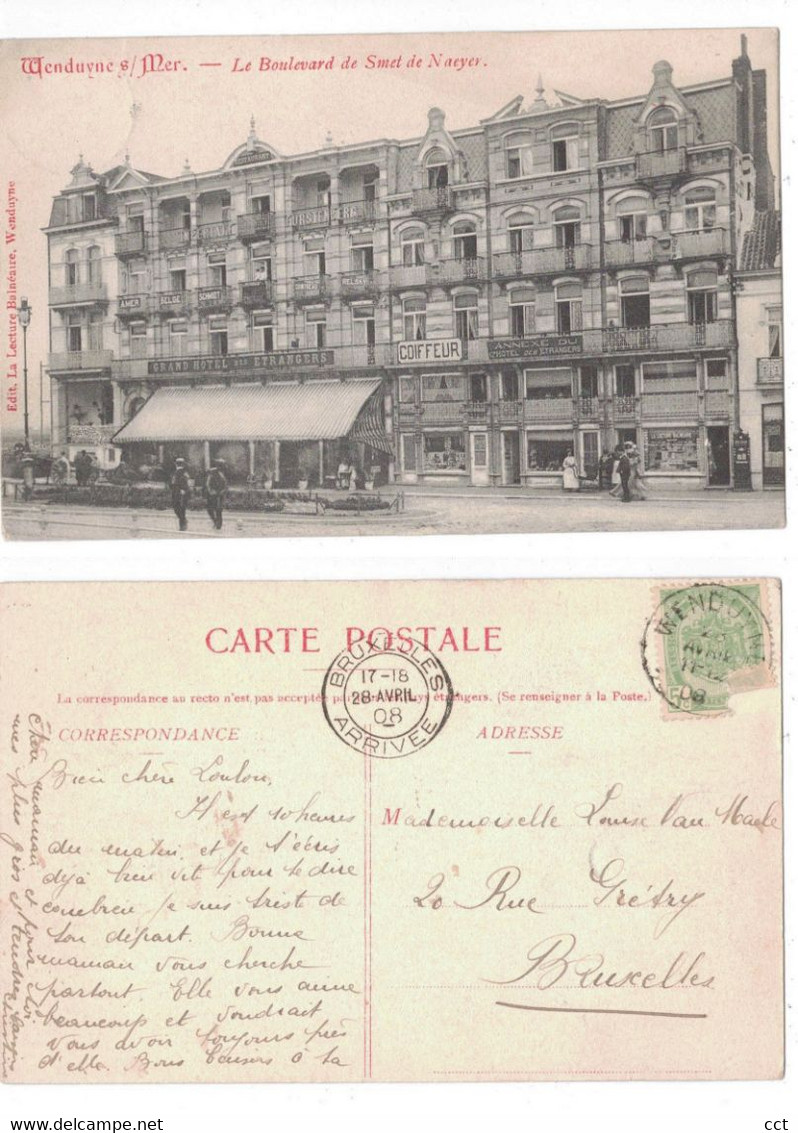 Wenduyne s/Mer. — Le Boulevard de Smet de Naeyer.
Edit. La Lecture Balnéaire, Wenduyne
RESTAURANT
AMER
GRAND HOTEL DES ETRANGERS
COIFFEUR
ANNEXE DU
L'HOTEL DES ETRANGERS
CARTE POSTALE
La correspondance au recto n'est pas acceptée pays étrangers. (Se renseigner à la Poste.)
CORRESPONDANCE
ADRESSE
BRUXELLES
17-18
28 AVRIL
08
ARRIVÉE
WENDUYNE
28
AVRIL
11-12
08
Bien chère Loulou,
Il est 10 heures
du matin, et je t'écris
déjà bien vite pour te dire
combien je suis triste de
ton départ. Bonne
maman vous cherche
partout. Elle vous aime
beaucoup et voudrait
vous avoir toujours près
d'elle. Bons baisers à ta
chère maman et pour toi
mes plus gros et tendres
Mademoiselle Louise Van Maele
20 Rue Grétry
Bruxelles
cct